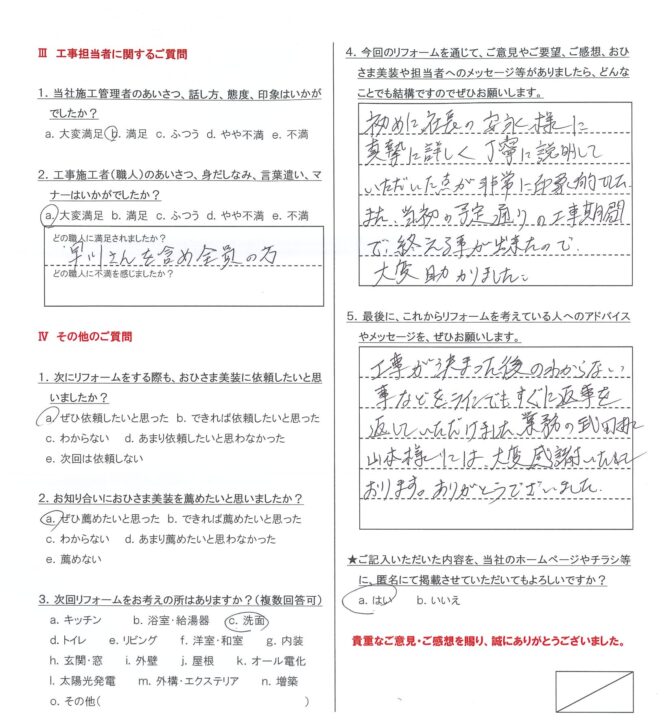 Ⅲ 工事担当者に関するご質問
1. 当社施工管理者のあいさつ、話し方、態度、印象はいかが
でしたか？
a. 大変満足 b. 満足 c. ふつう d. やや不満 e. 不満
2. 工事施工者（職人）のあいさつ、身だしなみ、言葉遣い、マ
ナーはいかがでしたか？
a. 大変満足 b. 満足 c. ふつう d. やや不満 e. 不満
どの職人に満足されましたか？
早川さんを含め全員の方
どの職人に不満を感じましたか？
Ⅳ その他のご質問
1. 次にリフォームをする際も、おひさま美装に依頼したいと思
いましたか？
a. ぜひ依頼したいと思った b. できれば依頼したいと思った
c. わからない d. あまり依頼したいと思わなかった
e. 次回は依頼しない
2. お知り合いにおひさま美装を薦めたいと思いましたか？
a. ぜひ薦めたいと思った b. できれば薦めたいと思った
c. わからない d. あまり薦めたいと思わなかった
e. 薦めない
3. 次回リフォームをお考えの所はありますか？（複数回答可）
a. キッチン b. 浴室・給湯器 c. 洗面
d. トイレ e. リビング f. 洋室・和室 g. 内装
h. 玄関・窓 i. 外壁 j. 屋根 k. オール電化
l. 太陽光発電 m. 外構・エクステリア n. 増築
o. その他( )
4. 今回のリフォームを通じて、ご意見やご要望、ご感想、おひ
さま美装や担当者へのメッセージ等がありましたら、どんな
ことでも結構ですのでぜひお願いします。
初めに社長の安永様に
真摯に詳しく丁寧に説明して
いただいた点が非常に印象的でした
また、当初の予定通りの工事期間
で終える事が出来たので
大変助かりました。
5. 最後に、これからリフォームを考えている人へのアドバイス
やメッセージを、ぜひお願いします。
工事が決まった後のわからない
事などをラインでもすぐに返事を
返していただけました 業務の武田様
山本様には、大変感謝いたして
おります。ありがとうございました.
★ご記入いただいた内容を、当社のホームページやチラシ等
に、匿名にて掲載させていただいてもよろしいですか？
a. はい b. いいえ
貴重なご意見・ご感想を賜り、誠にありがとうございました。